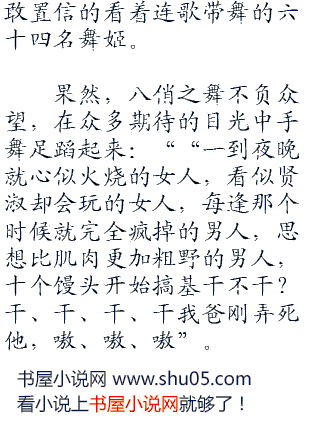 敢置信的看着连歌带舞的六
十四名舞姬。
果然，八俏之舞不负众
望，在众多期待的目光中手
舞足蹈起来：““一到夜晚
就心似火烧的女人，看似贤
淑却会玩的女人，每逢那个
时候就完全疯掉的男人，思
想比肌肉更加粗野的男人，
十个馒头开始搞基干不干？
干、干、干、干我爸刚弄死
他，嗷、嗷、嗷”。
书屋小说网 www.shu05.com
看小说上书屋小说网就够了！